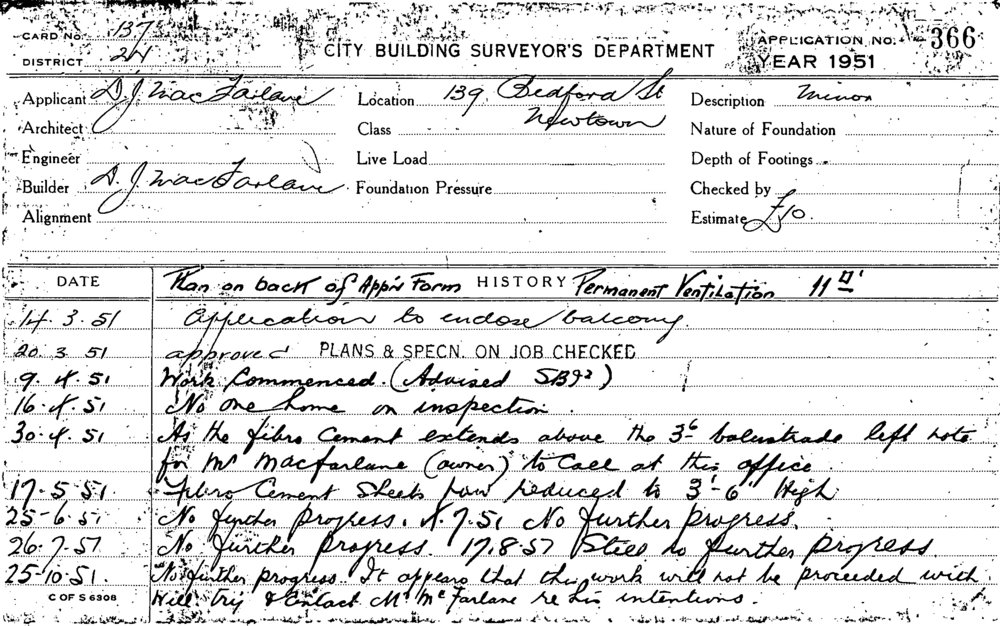 CARD No. 137
DISTRICT 24
CITY BUILDING SURVEYOR'S DEPARTMENT
APPLICATION No. 366
YEAR 1951
Applicant D. J. MacFarlane
Location 139 Bedford St
Newtown
Description Minor
Architect
Class
Nature of Foundation
Engineer
Live Load
Depth of Footings
Builder D. J. MacFarlane
Foundation Pressure
Checked by
Alignment
Estimate £10
DATE Plan on back of App'n Form HISTORY Permanent Ventilation 11
14. 3. 51 Application to enclose balcony.
20. 3. 51 approved PLANS & SPECN. ON JOB CHECKED
9. 4. 51 Work Commenced. (Advised
16. 4. 51 No one home on inspection.
30. 4. 51 As the fibro cement extends above the 3'-6" balustrade left note
for Mr Macfarlane (owner) to call at this office
17. 5. 51. Fibro Cement Sheets now reduced to 3'-6" High
25-6. 51 No further progress. 4.7.51 No further progress.
26. 7. 51 No further progress. 17.8.51 Still no further progress
25-10. 51. No further progress. It appears that this work will not be proceeded with
Will try & contact Mr McFarlane re his intentions.
C OF S 6308